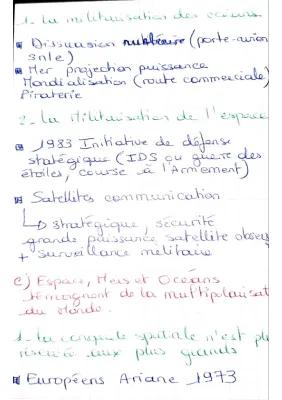 1. La militarisation des océans
Dissuasion nucléaire (porte-avion
snle)
Mer projection puissance
Mondialisation (route commerciale)
Piraterie
2. La Militarisation de l'espace
1983 Initiative de défense
stratégique (IDS ou guerre des
étoiles, course à l'Armement)
Satellites communication
↳ stratégique, sécurité
grande puissance, satellite observ
+ surveillance militaire
C) Espace, Mers et Océans
témoignent de la multipolarisat
du Monde.
1. La conquête spatiale n'est plu
réservée aux plus grands
Européens Ariane 1973